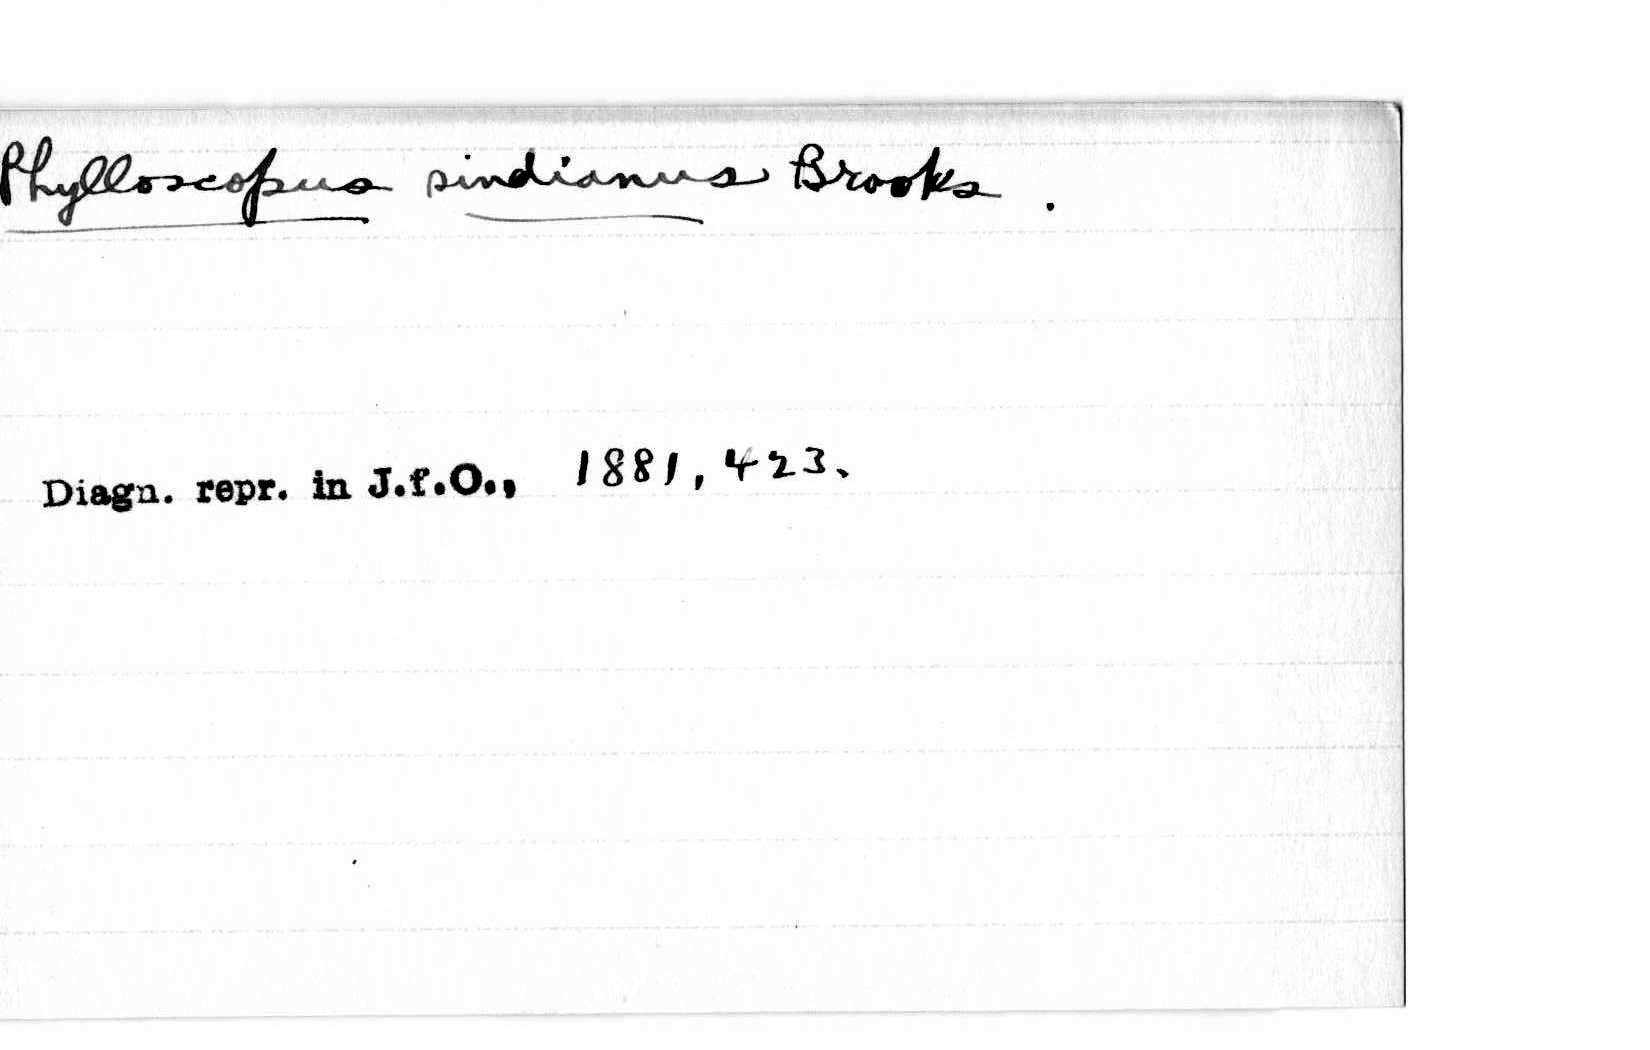 Phylloscopus sindianus Brooks.
Diagn. repr. in J.f.O., 1881, 423.